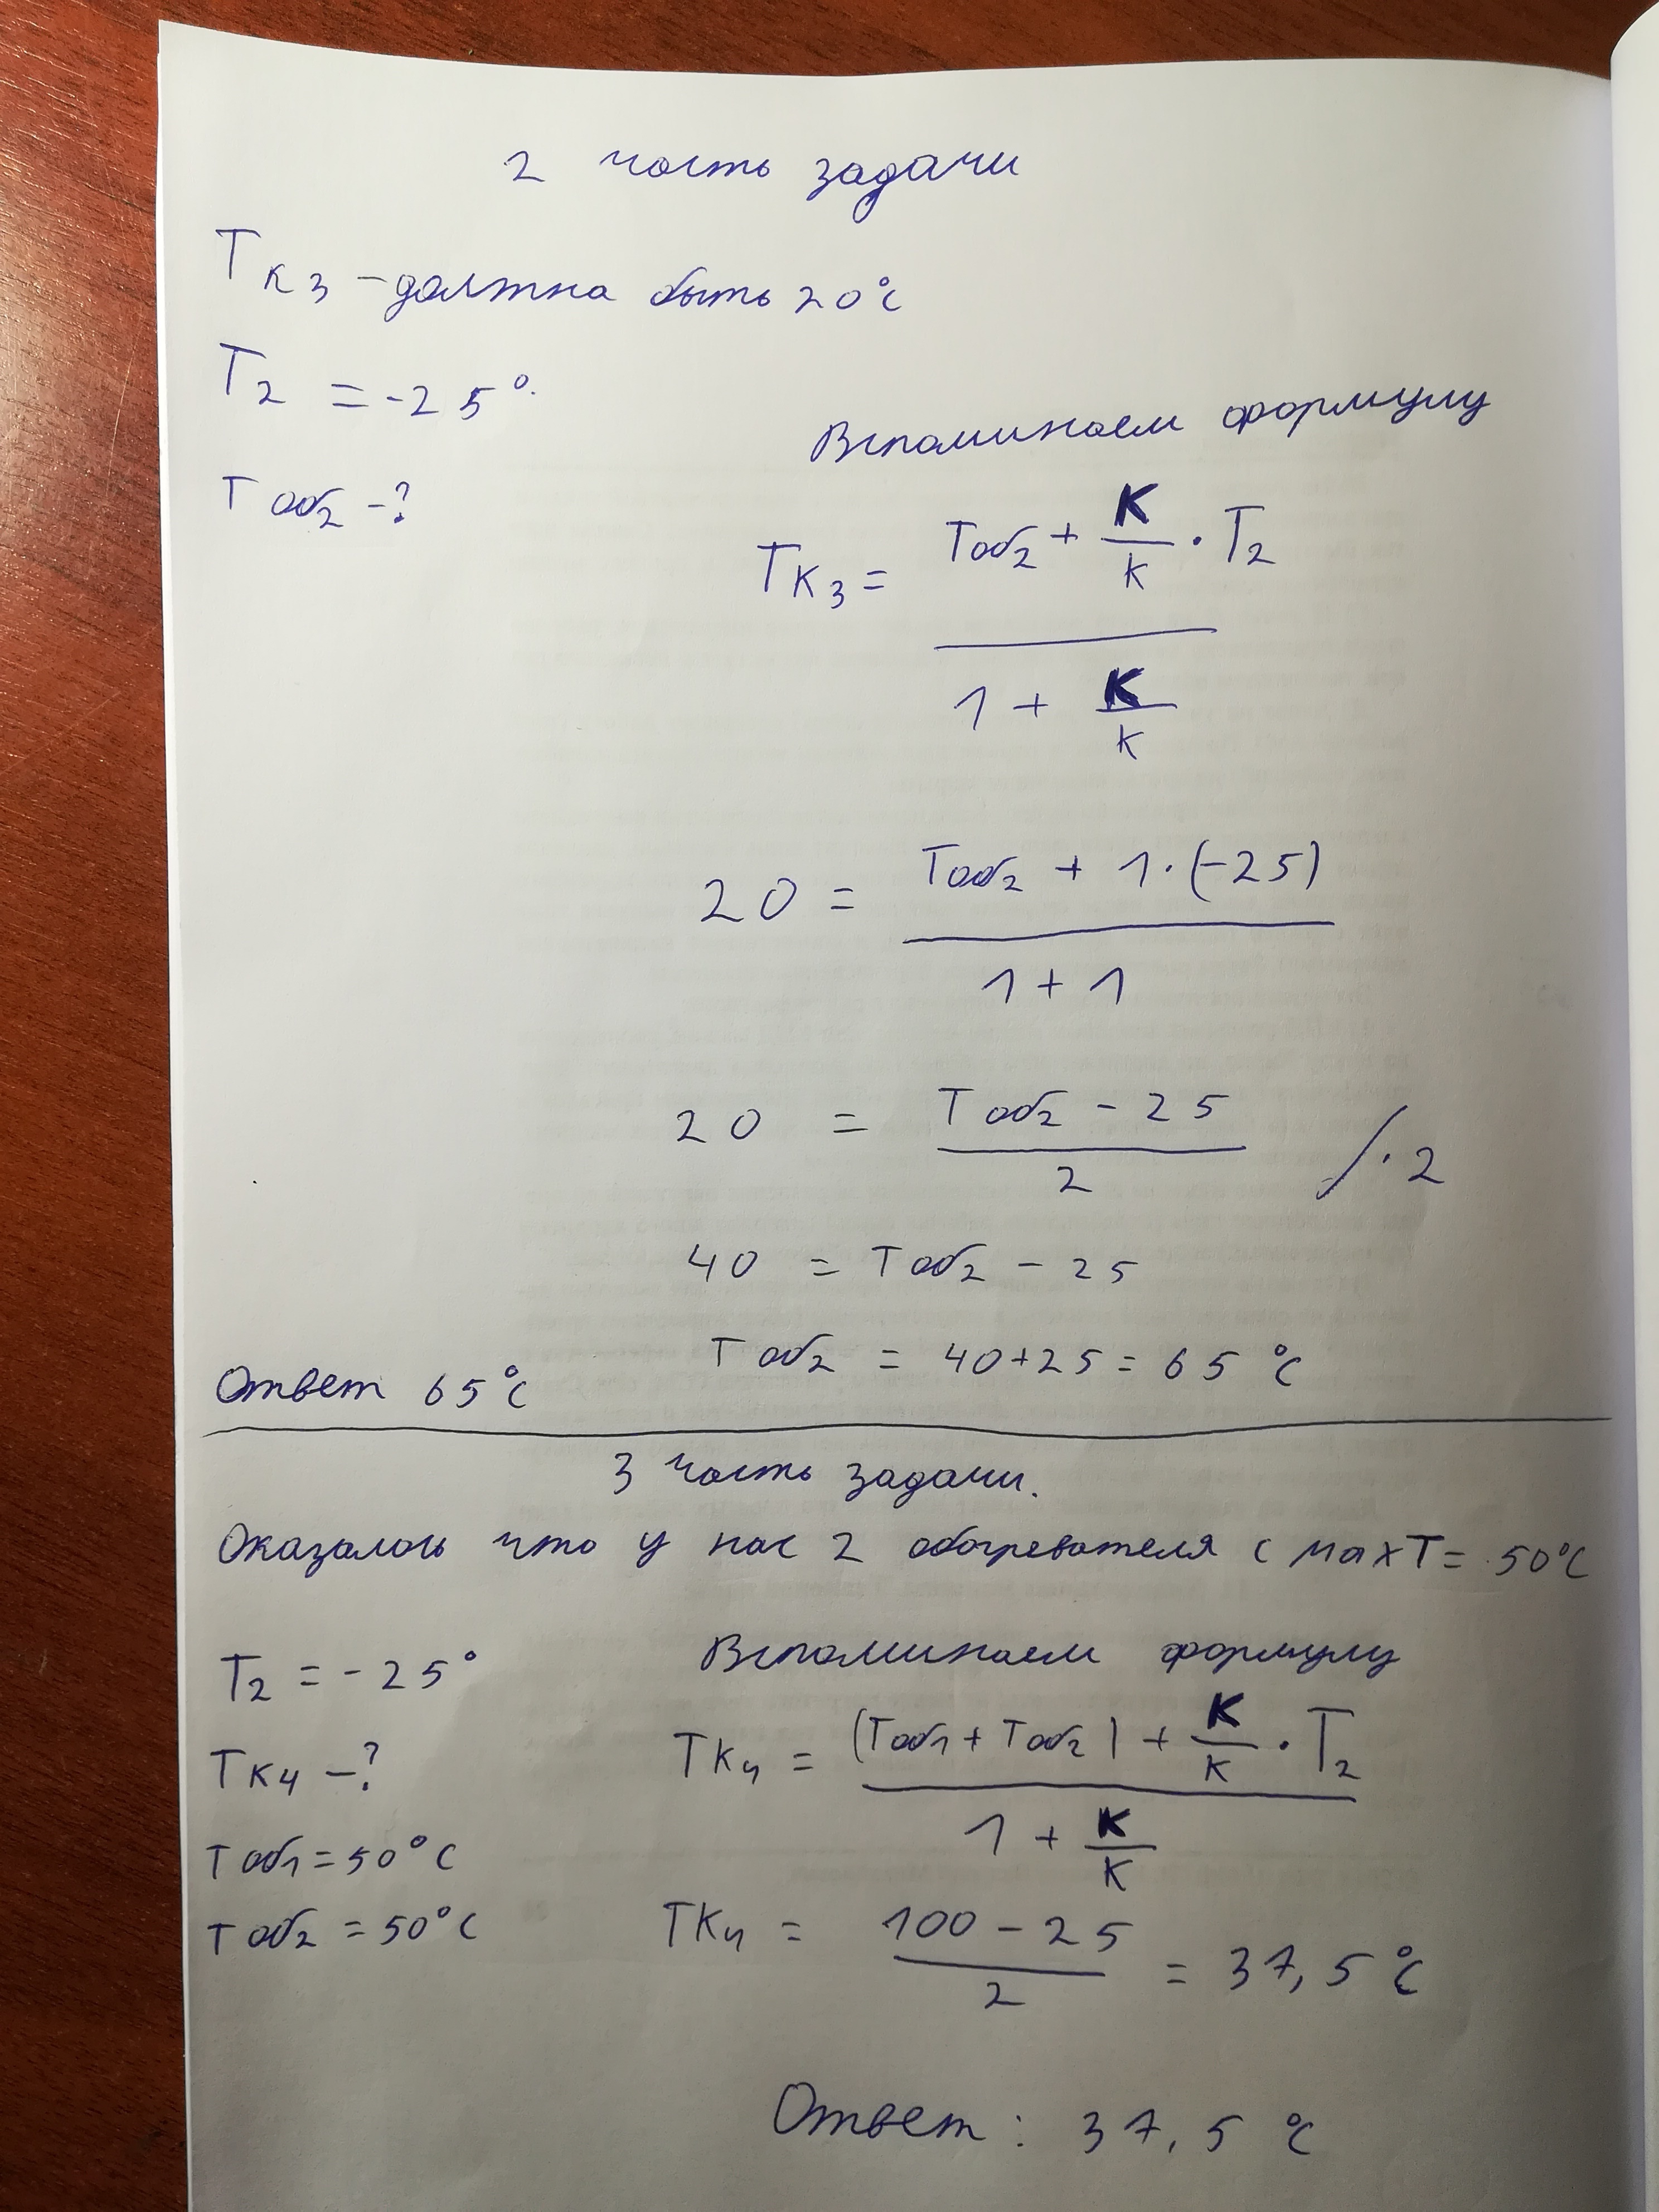 2 часть задачи
Tк3 - должна быть 20°C
T2 = -25°.
Tоб2 - ?
Вспоминаем формулу
Tк3 = (Tоб2 + K/k · T2) / (1 + K/k)
20 = (Tоб2 + 1·(-25)) / (1 + 1)
20 = (Tоб2 - 25) / 2 /·2
40 = Tоб2 - 25
Tоб2 = 40+25 = 65 °C
Ответ 65°C
3 часть задачи.
Оказалось что у нас 2 обогревателя с maxT = 50°C
T2 = -25°
Вспоминаем формулу
Tк4 - ?
Tк4 = ((Tоб1 + Tоб2) + K/k · T2) / (1 + K/k)
Tоб1 = 50°C
Tоб2 = 50°C
Tк4 = (100 - 25) / 2 = 37,5 °C
Ответ: 37,5 °C